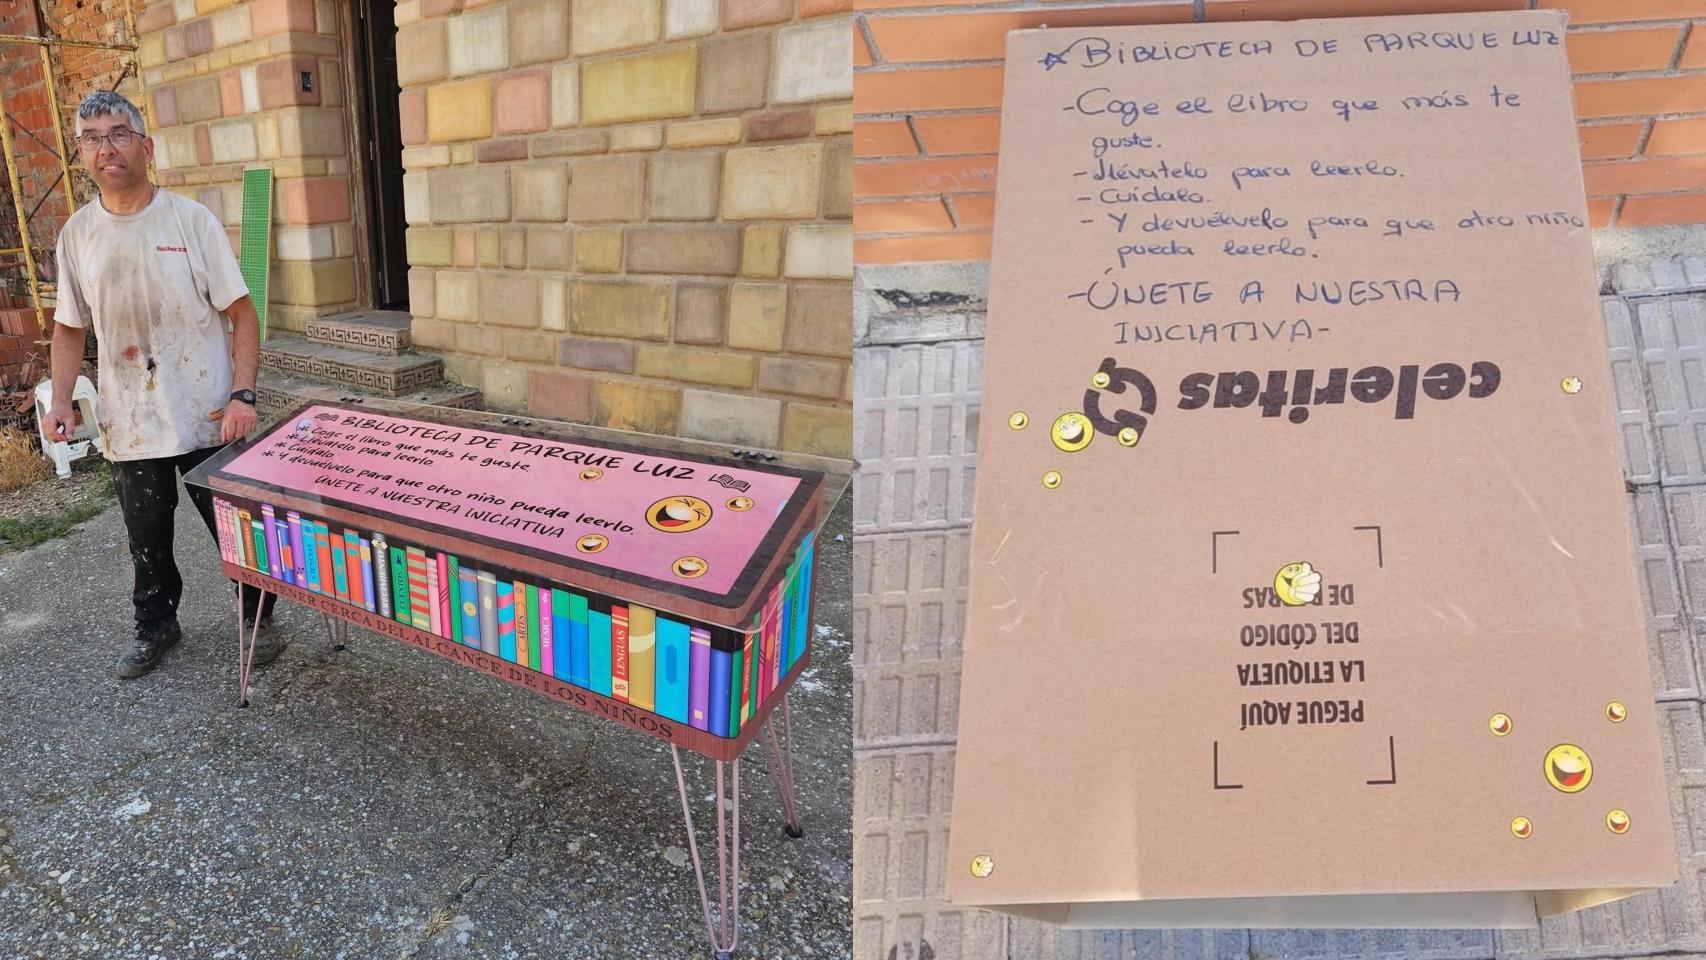 fischer
BIBLIOTECA DE PARQUE LUZ
* Coge el libro que más te guste.
* Llévatelo para leerlo
* Cuídalo
* Y devuélvelo para que otro niño pueda leerlo.
ÚNETE A NUESTRA INICIATIVA
CIENCIAS
CRECIMIENTO
CUENTOS
ARTES
MÚSICA
LENGUAS
POESÍA
FÁBULAS
DEPORTE
MANTENER CERCA DEL ALCANCE DE LOS NIÑOS
BIBLIOTECA DE PARQUE LUZ
- Coge el libro que más te
guste.
- Llévatelo para leerlo.
- Cuídalo.
- Y devuélvelo para que otro niño
pueda leerlo.
- ÚNETE A NUESTRA
INICIATIVA -
celeritas
PEGUE AQUÍ
LA ETIQUETA
DEL CÓDIGO
DE